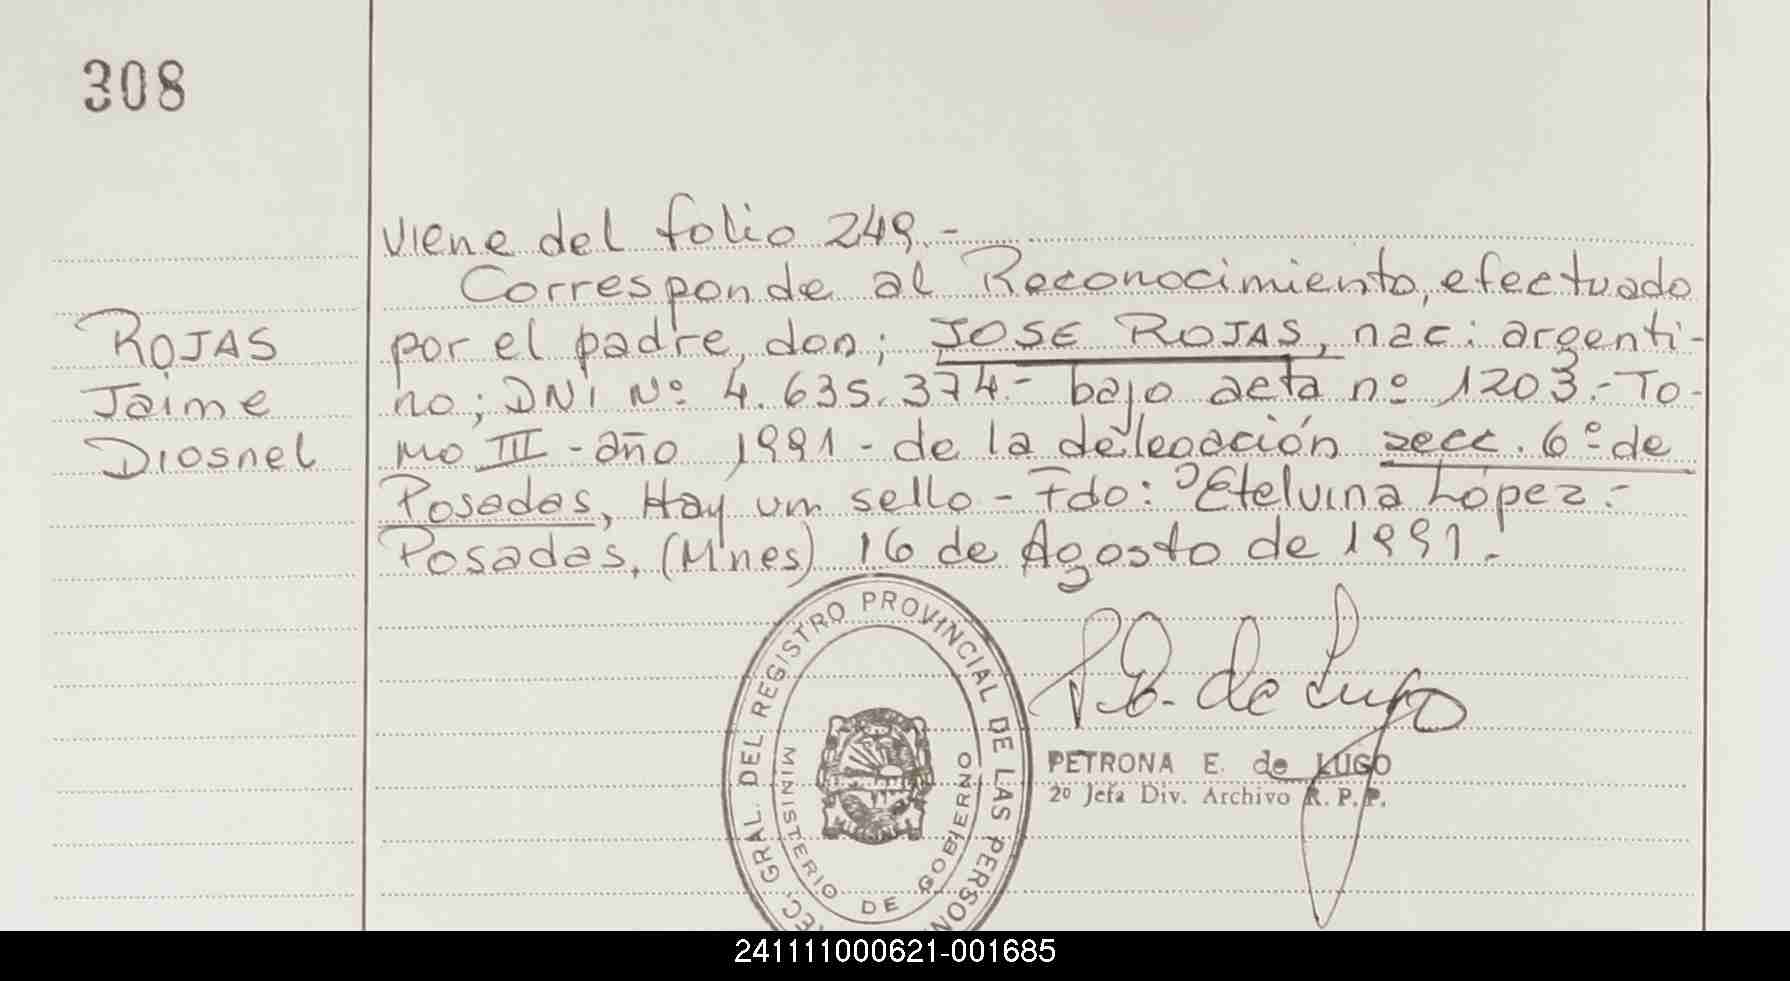 308
viene del folio 249.-
Corresponde al Reconocimiento, efectuado
ROJAS
por el padre, don; JOSE ROJAS, nac: argenti-
Jaime
no; DNI Nº 4.635.374.- bajo acta nº 1203.- To-
Diosnel
mo III - año 1991 - de la delegación secc. 6º de
Posadas, Hay un sello - Fdo: Etelvina López.-
Posadas, (Mnes) 16 de Agosto de 1991.-
P. E. de Lugo
PETRONA E. de LUGO
2º Jefa Div. Archivo R. P. P.
REC. GRAL. DEL REGISTRO PROVINCIAL DE LAS PERSON
MINISTERIO DE GOBIERNO
241111000621-001685